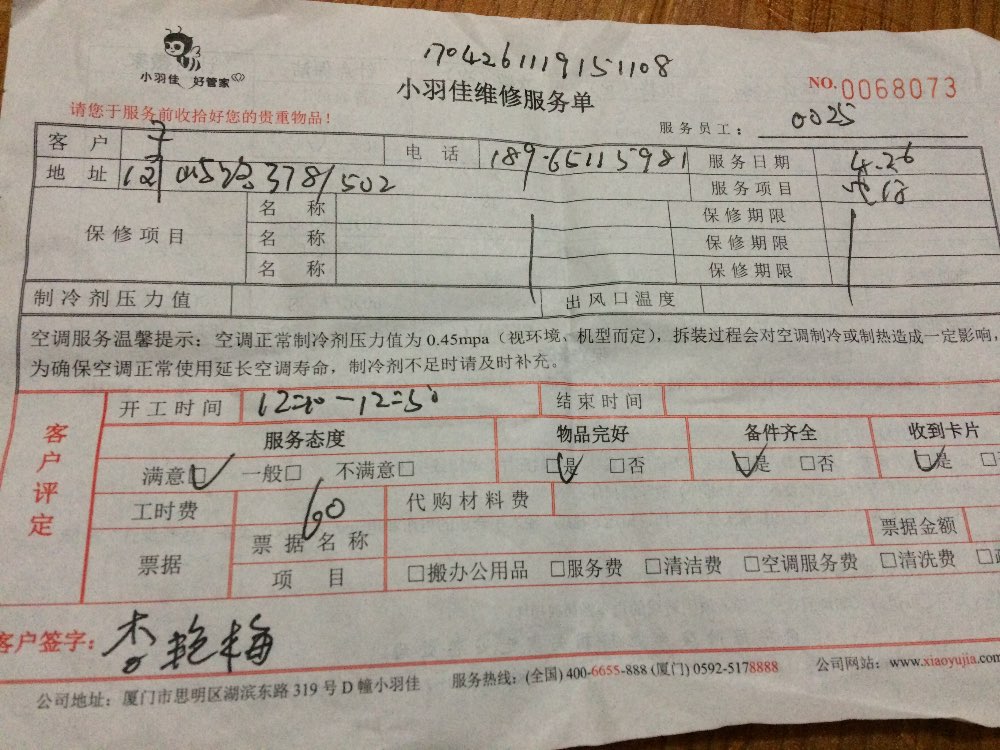 小羽佳 好管家
1704261119151108
小羽佳维修服务单
NO.0068073
请您于服务前收拾好您的贵重物品！
服务员工： 0025
客户 电话 189-65115981 服务日期 4.26
地址 378/502 服务项目
保修项目 名称 保修期限
名称 保修期限
名称 保修期限
制冷剂压力值 出风口温度
空调服务温馨提示：空调正常制冷剂压力值为 0.45mpa（视环境、机型而定），拆装过程会对空调制冷或制热造成一定影响，
为确保空调正常使用延长空调寿命，制冷剂不足时请及时补充。
客户评定
开工时间 12:10-12:50 结束时间
服务态度 物品完好 备件齐全 收到卡片
满意□ 一般□ 不满意□ □是 □否 □是 □否 □是
工时费 60 代购材料费
票据 票据名称 票据金额
项目 □搬办公用品 □服务费 □清洁费 □空调服务费 □清洗费
客户签字：李艳梅
公司地址：厦门市思明区湖滨东路 319 号 D 幢小羽佳 服务热线：(全国) 400-6655-888 (厦门) 0592-5178888 公司网站：www.xiaoyujia.com